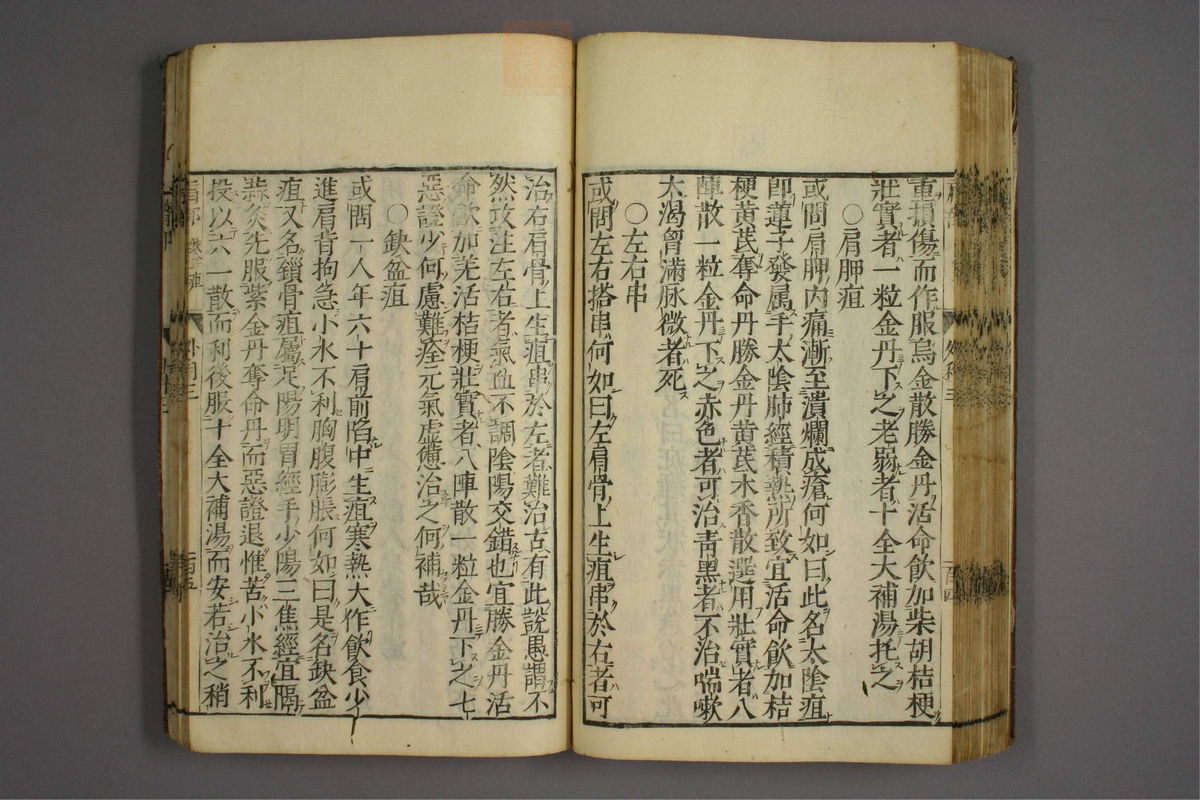 重損傷而作服烏金散勝金丹活命飲加柴胡桔梗
壯實者一粒金丹下之老弱者十全大補湯托之
〇肩胛疽
或問肩胛内痛漸至潰爛成瘡何如曰此名太陰疽
即蓮子發属手太陰肺經積熱所致宜活命飲加桔
梗黄茋奪命丹勝金丹黄茋木香散選用壯實者八
陣散一粒金丹下之赤色者可治青黑者不治喘嗽
太渴胷滿脉微者死
〇左右串
或問左右搭串何如曰左肩骨上生疽串於右者可
治右肩骨上生疽串於左者難治古有此說愚謂不
然攻注左右者氣血不調陰陽交錯也宜勝金丹活
命飲加羌活桔梗壯實者八陣散一粒金丹下之七
惡證少何慮難痊元氣虛憊治之何補哉
〇鈌盆疽
或問一人年六十肩前陷中生疽寒熱大作飲食少
進肩背拘急小水不利胸腹膨脹何如曰是名缺盆
疽又名鎖骨疽屬足陽明胃經手少陽三焦經宜隔
蒜灸先服紫金丹奪命丹而惡證退惟苦小水不利
投以六一散而利後服十全大補湯而安若治之稍